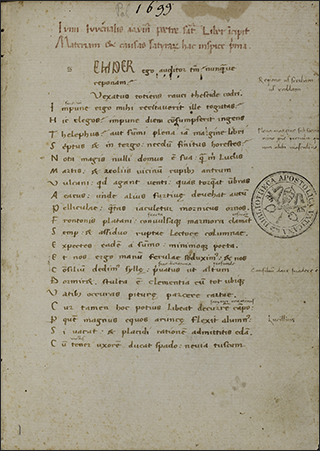 1699
Iunii Iuvenalis aquin̄. poetæ sat̄. Liber īcipit
Materiam & causas satyrarum hac inspice prima
SEMPER ego auditor tm̄ nunque
reponam?
Vexatus totiens rauci theseide codri.
Impune ergo mihi recitaverit ille togatas:
Hic elegos: impune diem cōsumpserit ingens
Thelephus: aut summi plena iā margine libri
Sc̄ptus & in tergo: necdū finitus horestes
Nota magis nulli domus ē sua q̄ m̄ lucus
Martis: & aeoliis vicinū rupibus antrum
Vulcani: qd agant venti: quas torqat ūbras
Aeacus: unde alius furtivæ devehat aurū
Pelliculæ: q̄ntas iaculetur monicus ornos.
Frontonis platani: convulsaque marmora clamāt
Semp & assiduo ruptæ lectore columnæ.
Expectes eadē a summo: minimoque poeta.
Et nos ergo manū ferulæ subduxim: & nos
Cōsiliū dedim syllæ: privatus ut altum
Dormiret. stulta ē clementia cū tot ubique
Vatib occurras perituræ parcere cartæ.
Cur tamen hoc potius libeat decurrere campo
Per quē magnus equos auruncæ flexit alumn
Si vacat: & placidi rationē admittitis edā.
Cū tener uxorē ducat spado: nevia tuscum
Lucillius
BIBLIOTHECA APOSTOLICA VATICANA